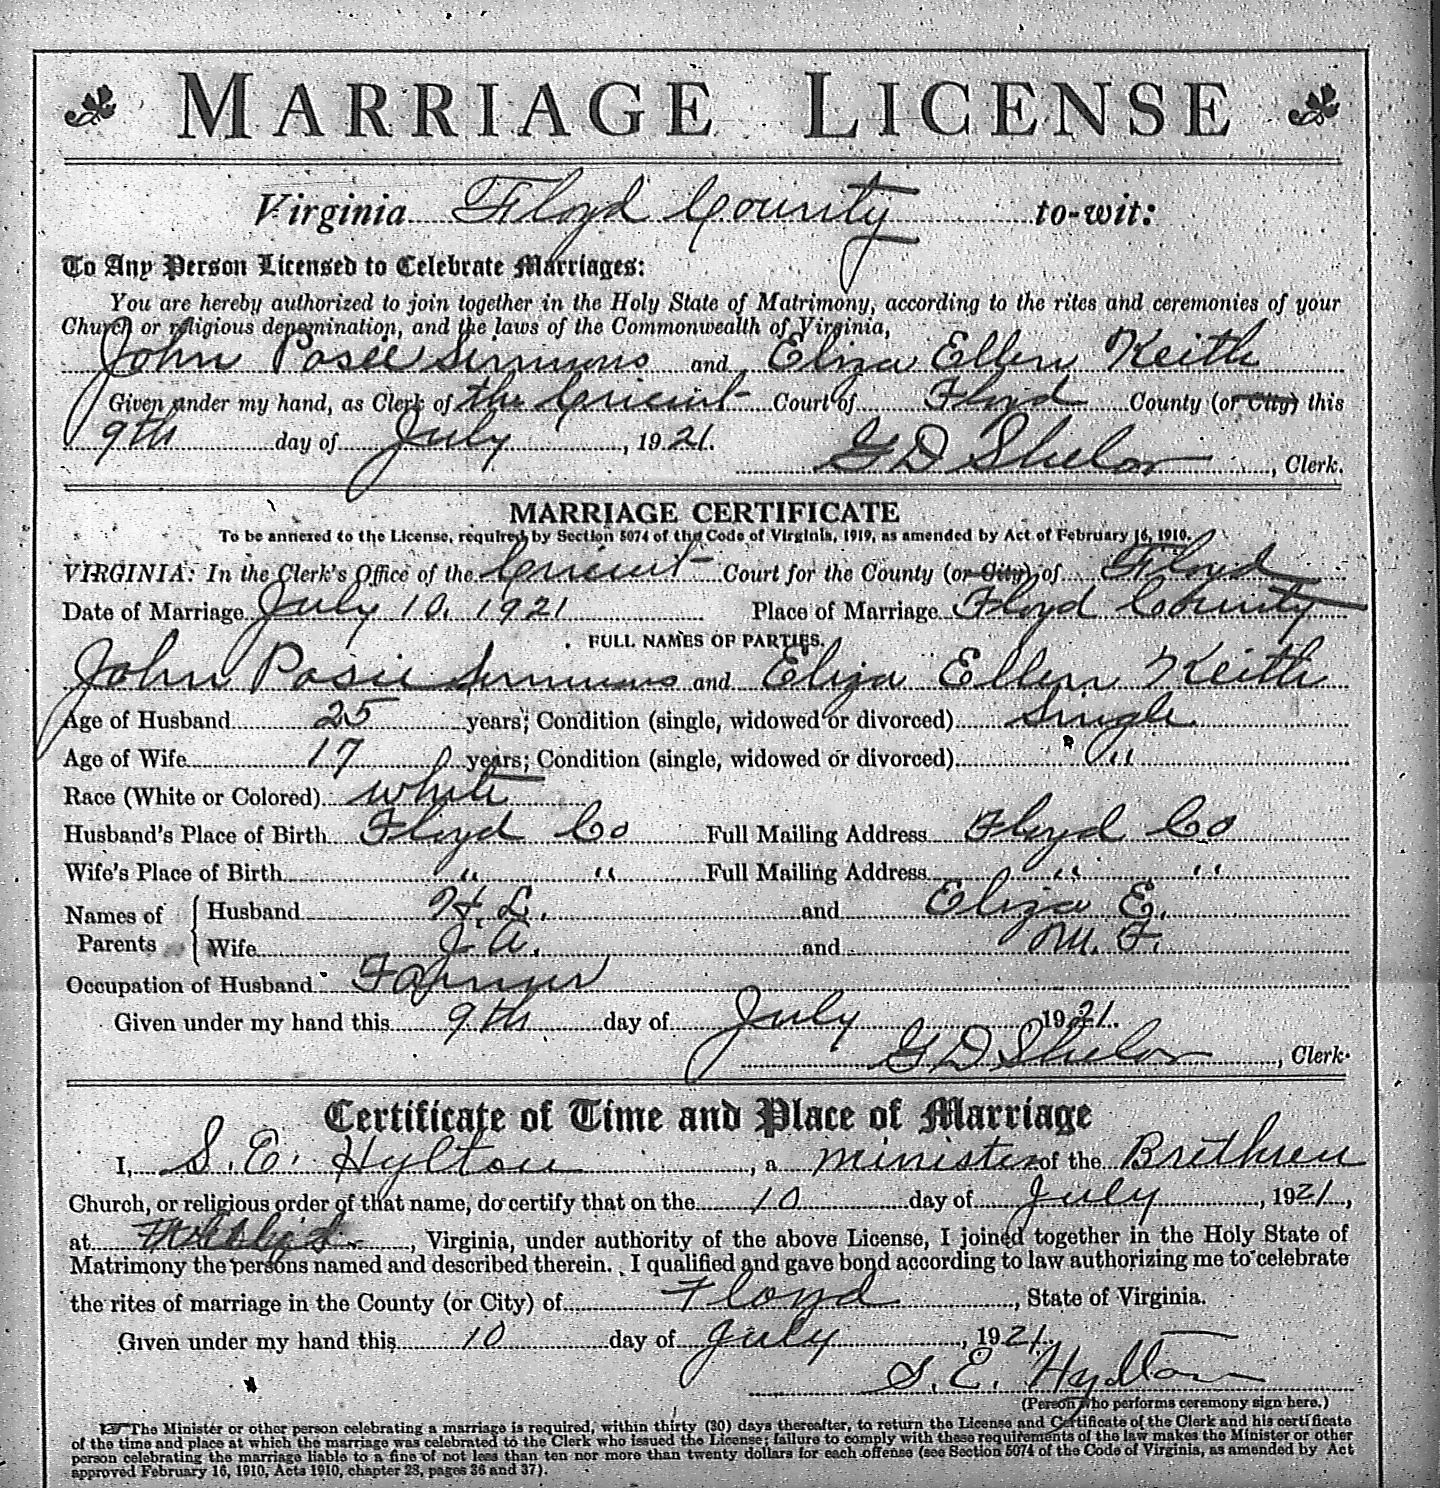 MARRIAGE LICENSE
Virginia Floyd County to-wit:
To Any Person Licensed to Celebrate Marriages:
You are hereby authorized to join together in the Holy State of Matrimony, according to the rites and ceremonies of your
Church or religious denomination, and the laws of the Commonwealth of Virginia,
John Posie Simmons and Eliza Ellen Keith
Given under my hand, as Clerk of the Circuit Court of Floyd County (or City) this
9th day of July, 1921.
G D Shelor, Clerk.
MARRIAGE CERTIFICATE
To be annexed to the License, required by Section 5074 of the Code of Virginia, 1919, as amended by Act of February 16, 1910.
VIRGINIA: In the Clerk's Office of the Circuit Court for the County (or City) of Floyd
Date of Marriage July 10, 1921 Place of Marriage Floyd County
FULL NAMES OF PARTIES.
John Posie Simmons and Eliza Ellen Keith
Age of Husband 25 years; Condition (single, widowed or divorced) Single
Age of Wife 17 years; Condition (single, widowed or divorced) "
Race (White or Colored) White
Husband's Place of Birth Floyd Co Full Mailing Address Floyd Co
Wife's Place of Birth " " Full Mailing Address " "
Names of Parents Husband H. L. and Eliza E.
Wife J. A. and M. F.
Occupation of Husband Farmer
Given under my hand this 9th day of July 1921.
G D Shelor, Clerk.
Certificate of Time and Place of Marriage
I, S. E. Hylton, a minister of the Brethren
Church, or religious order of that name, do certify that on the 10 day of July, 1921,
at , Virginia, under authority of the above License, I joined together in the Holy State of
Matrimony the persons named and described therein. I qualified and gave bond according to law authorizing me to celebrate
the rites of marriage in the County (or City) of Floyd, State of Virginia.
Given under my hand this 10 day of July, 1921.
S. E. Hylton
(Person who performs ceremony sign here.)
The Minister or other person celebrating a marriage is required, within thirty (30) days thereafter, to return the License and Certificate of the Clerk and his certificate
of the time and place at which the marriage was celebrated to the Clerk who issued the License; failure to comply with these requirements of the law makes the Minister or other
person celebrating the marriage liable to a fine of not less than ten nor more than twenty dollars for each offense (see Section 5074 of the Code of Virginia, as amended by Act
approved February 16, 1910, Acts 1910, chapter 28, pages 36 and 37).